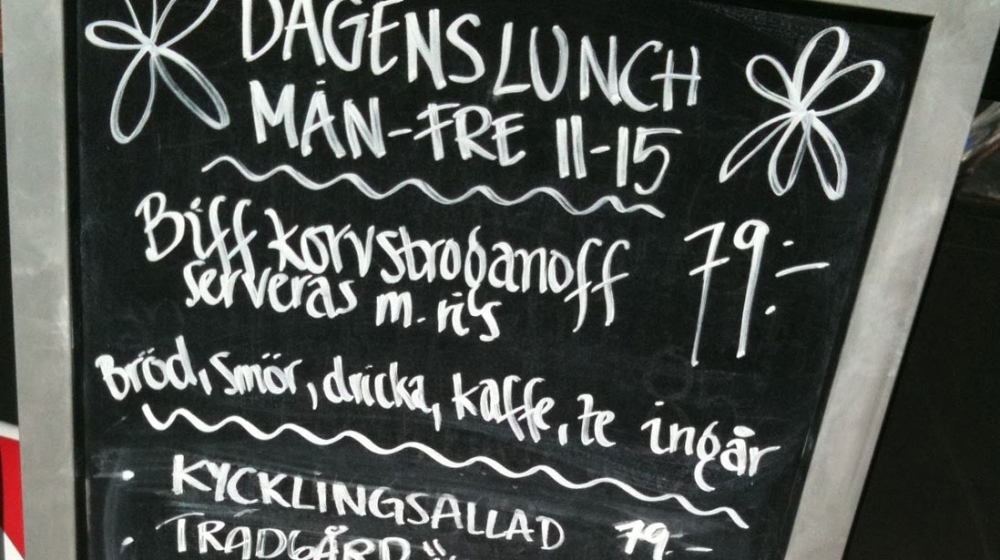 DAGENS LUNCH
MÅN-FRE 11-15
Biff korvstroganoff 79:-
serveras m. ris
Bröd, smör, dricka, kaffe, te ingår
• KYCKLINGSALLAD 79.-
• TRÄDGÅRD